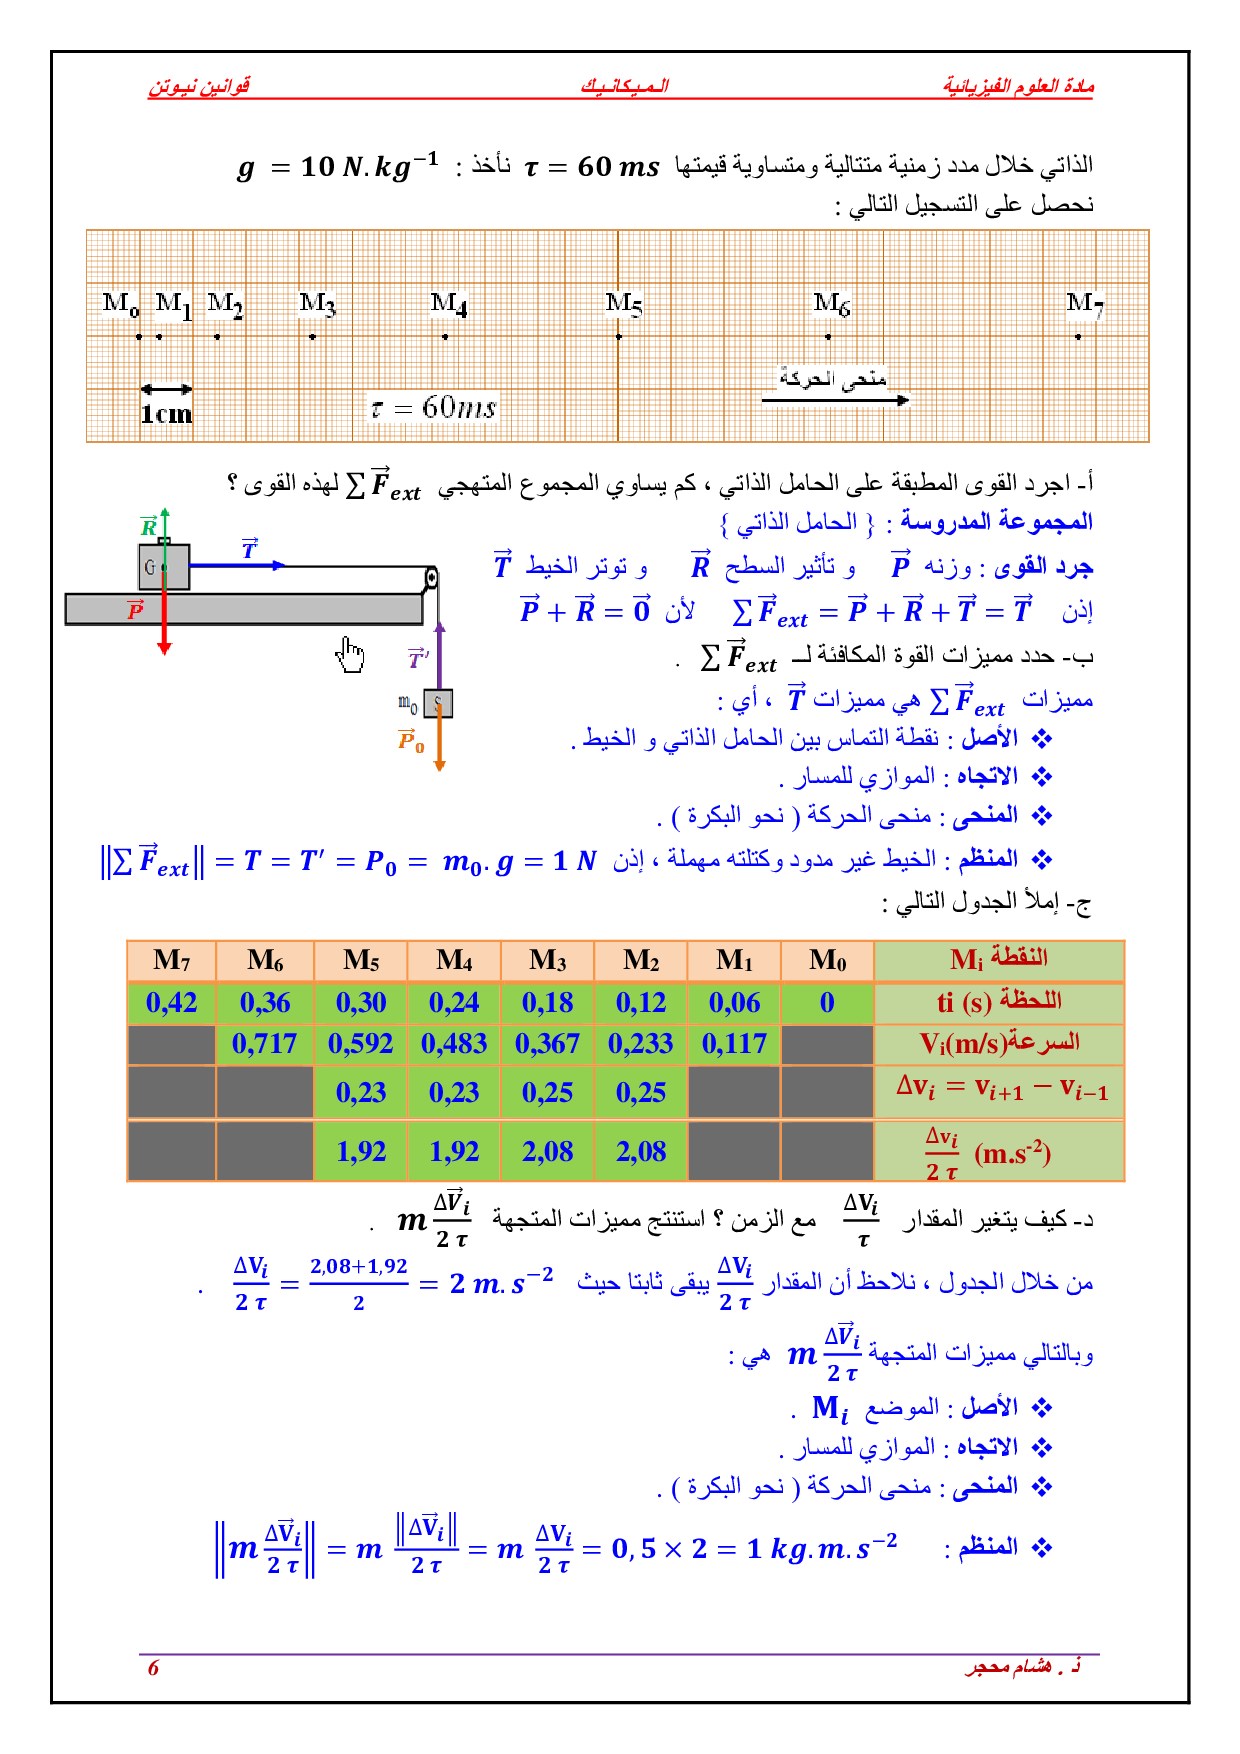 مادة العلوم الفيزيائية الـمـيـكـانـيـك قوانين نيوتن
الذاتي خلال مدد زمنية متتالية ومتساوية قيمتها τ = 60 ms نأخذ : g = 10 N.kg⁻¹
نحصل على التسجيل التالي :
M₀ M₁ M₂ M₃ M₄ M₅ M₆ M₇
منحى الحركة
1cm τ = 60ms
أ- اجرد القوى المطبقة على الحامل الذاتي ، كم يساوي المجموع المتهجي ∑F⃗ₑₓₜ لهذه القوى ؟
المجموعة المدروسة : { الحامل الذاتي }
جرد القوى : وزنه P⃗ و تأثير السطح R⃗ و توتر الخيط T⃗
إذن ∑F⃗ₑₓₜ = P⃗ + R⃗ + T⃗ = T⃗ لأن P⃗ + R⃗ = 0⃗
R⃗ T⃗ G P⃗ T⃗' m₀ S P⃗₀
ب- حدد مميزات القوة المكافئة لــ ∑F⃗ₑₓₜ .
مميزات ∑F⃗ₑₓₜ هي مميزات T⃗ ، أي :
❖ الأصل : نقطة التماس بين الحامل الذاتي و الخيط .
❖ الاتجاه : الموازي للمسار .
❖ المنحى : منحى الحركة ( نحو البكرة ) .
❖ المنظم : الخيط غير مدود وكتلته مهملة ، إذن ‖∑F⃗ₑₓₜ‖ = T = T′ = P₀ = m₀.g = 1 N
ج- إملأ الجدول التالي :
النقطة Mᵢ M₀ M₁ M₂ M₃ M₄ M₅ M₆ M₇
اللحظة ti (s) 0 0,06 0,12 0,18 0,24 0,30 0,36 0,42
السرعة Vᵢ(m/s) 0,117 0,233 0,367 0,483 0,592 0,717
Δvᵢ = vᵢ₊₁ − vᵢ₋₁ 0,25 0,25 0,23 0,23
Δvᵢ/2 τ (m.s⁻²) 2,08 2,08 1,92 1,92
د- كيف يتغير المقدار ΔVᵢ/τ مع الزمن ؟ استنتج مميزات المتجهة m ΔV⃗ᵢ/2 τ .
من خلال الجدول ، نلاحظ أن المقدار ΔVᵢ/2 τ يبقى ثابتا حيث ΔVᵢ/2 τ = (2,08+1,92)/2 = 2 m.s⁻² .
وبالتالي مميزات المتجهة m ΔV⃗ᵢ/2 τ هي :
❖ الأصل : الموضع Mᵢ .
❖ الاتجاه : الموازي للمسار .
❖ المنحى : منحى الحركة ( نحو البكرة ) .
❖ المنظم : ‖m ΔV⃗ᵢ/2 τ‖ = m ‖ΔV⃗ᵢ‖/2 τ = m ΔVᵢ/2 τ = 0,5 × 2 = 1 kg.m.s⁻²
ذ . هشام محجر 6